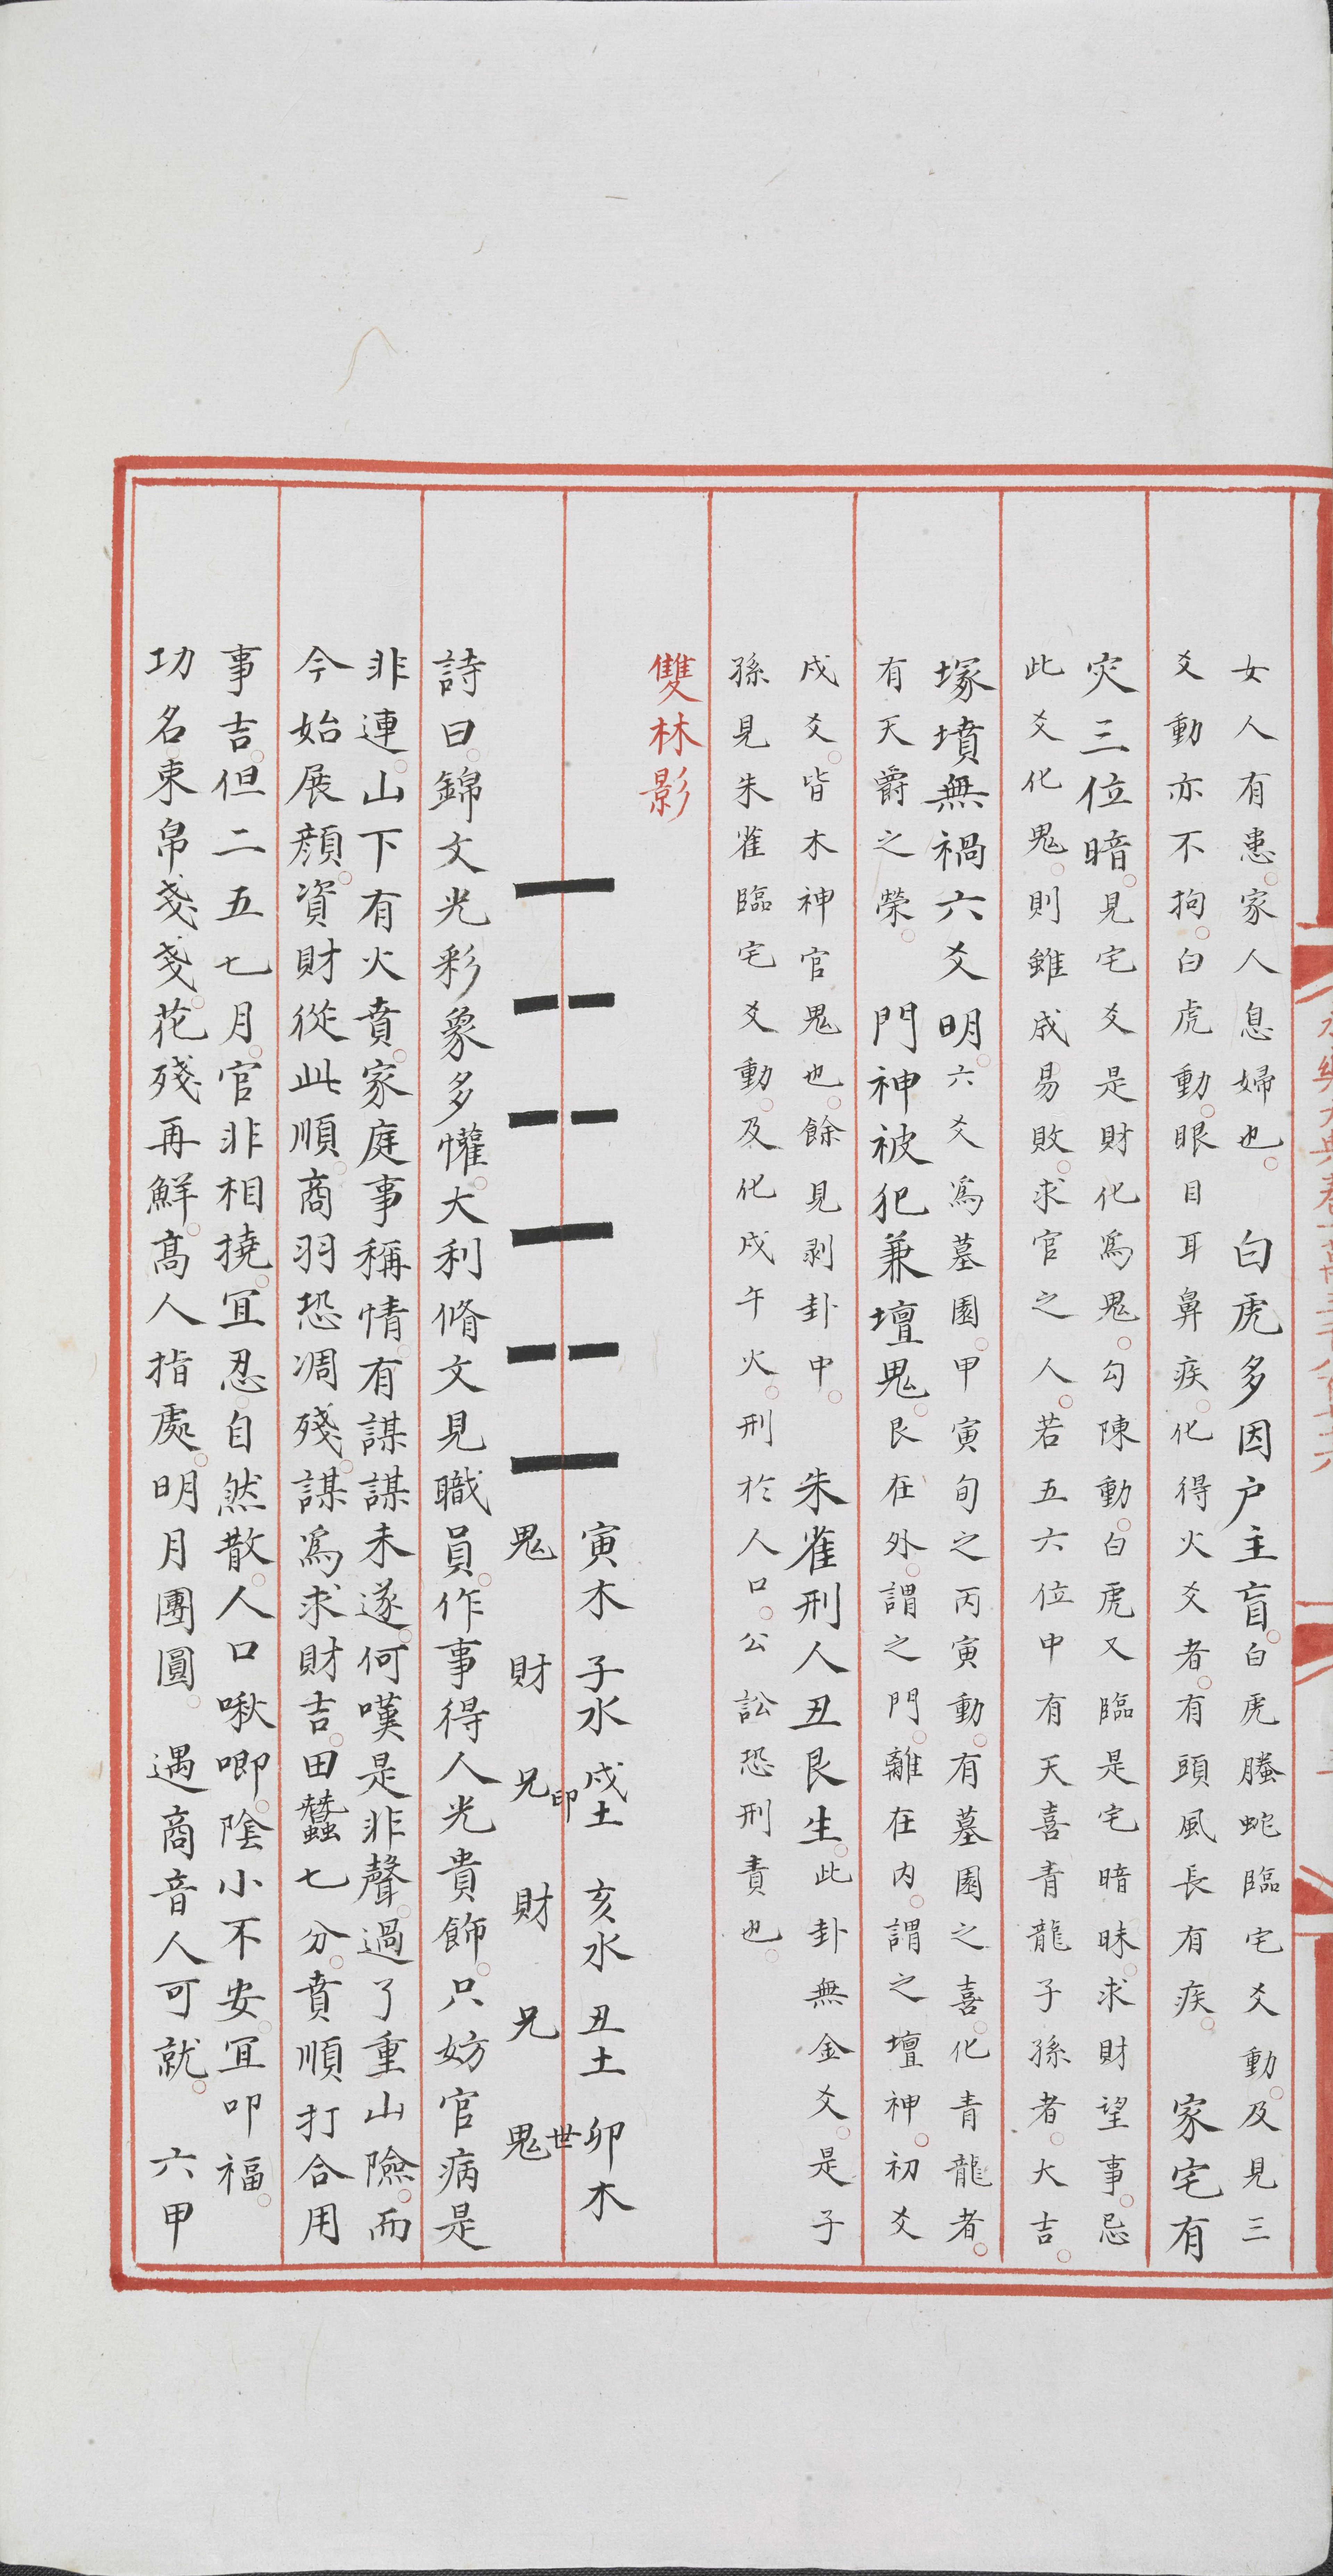 女人有患。家人息婦也。　白虎多因户主盲。白虎螣蛇臨宅爻動。及見三
爻動亦不拘。白虎動。眼目耳鼻疾。化得火爻者。有頭風長有疾。　家宅有
灾三位暗。見宅爻是財化爲鬼。勾陳動。白虎又臨是宅暗昧。求財望事。忌
此爻化鬼。則雖成易敗。求官之人。若五六位中有天喜青龍子孫者。大吉。
塚墳無禍六爻明。六爻爲墓園。甲寅旬之丙寅動。有墓園之喜。化青龍者。
有天爵之榮。　門神被犯兼壇鬼。艮在外。謂之門。離在内。謂之壇神。初爻
戌爻。皆木神官鬼也。餘見剥卦中。　朱雀刑人丑艮生。此卦無金爻。是子
孫見朱雀臨宅爻動。及化戌午火。刑於人口。公訟恐刑責也。
雙林影
寅木　子水　戌土　亥水　丑土　卯木
鬼　財　兄　財　兄　鬼
印　世
詩曰。錦文光彩象多懽。大利脩文見職員。作事得人光貴飾。只妨官病是
非連。山下有火賁。家庭事稱情。有謀謀未遂。何嘆是非聲。過了重山險。而
今始展顔。資財從此順。商羽恐凋殘。謀爲求財吉。田蠶七分。賁順打合用
事吉。但二五七月。官非相撓。宜忍。自然散。人口啾唧。陰小不安。宜叩福。
功名束帛戔戔。花殘再鮮。髙人指處。明月團圓。　遇商音人可就。　六甲